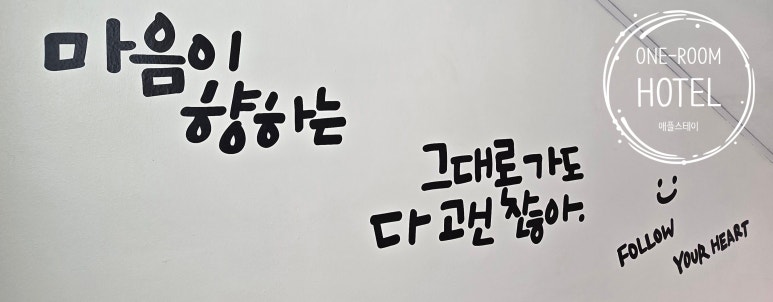 마음이
향하는
그대로가도
다 괜찮아.
ONE-ROOM
HOTEL
애플스테이
FOLLOW
YOUR HEART